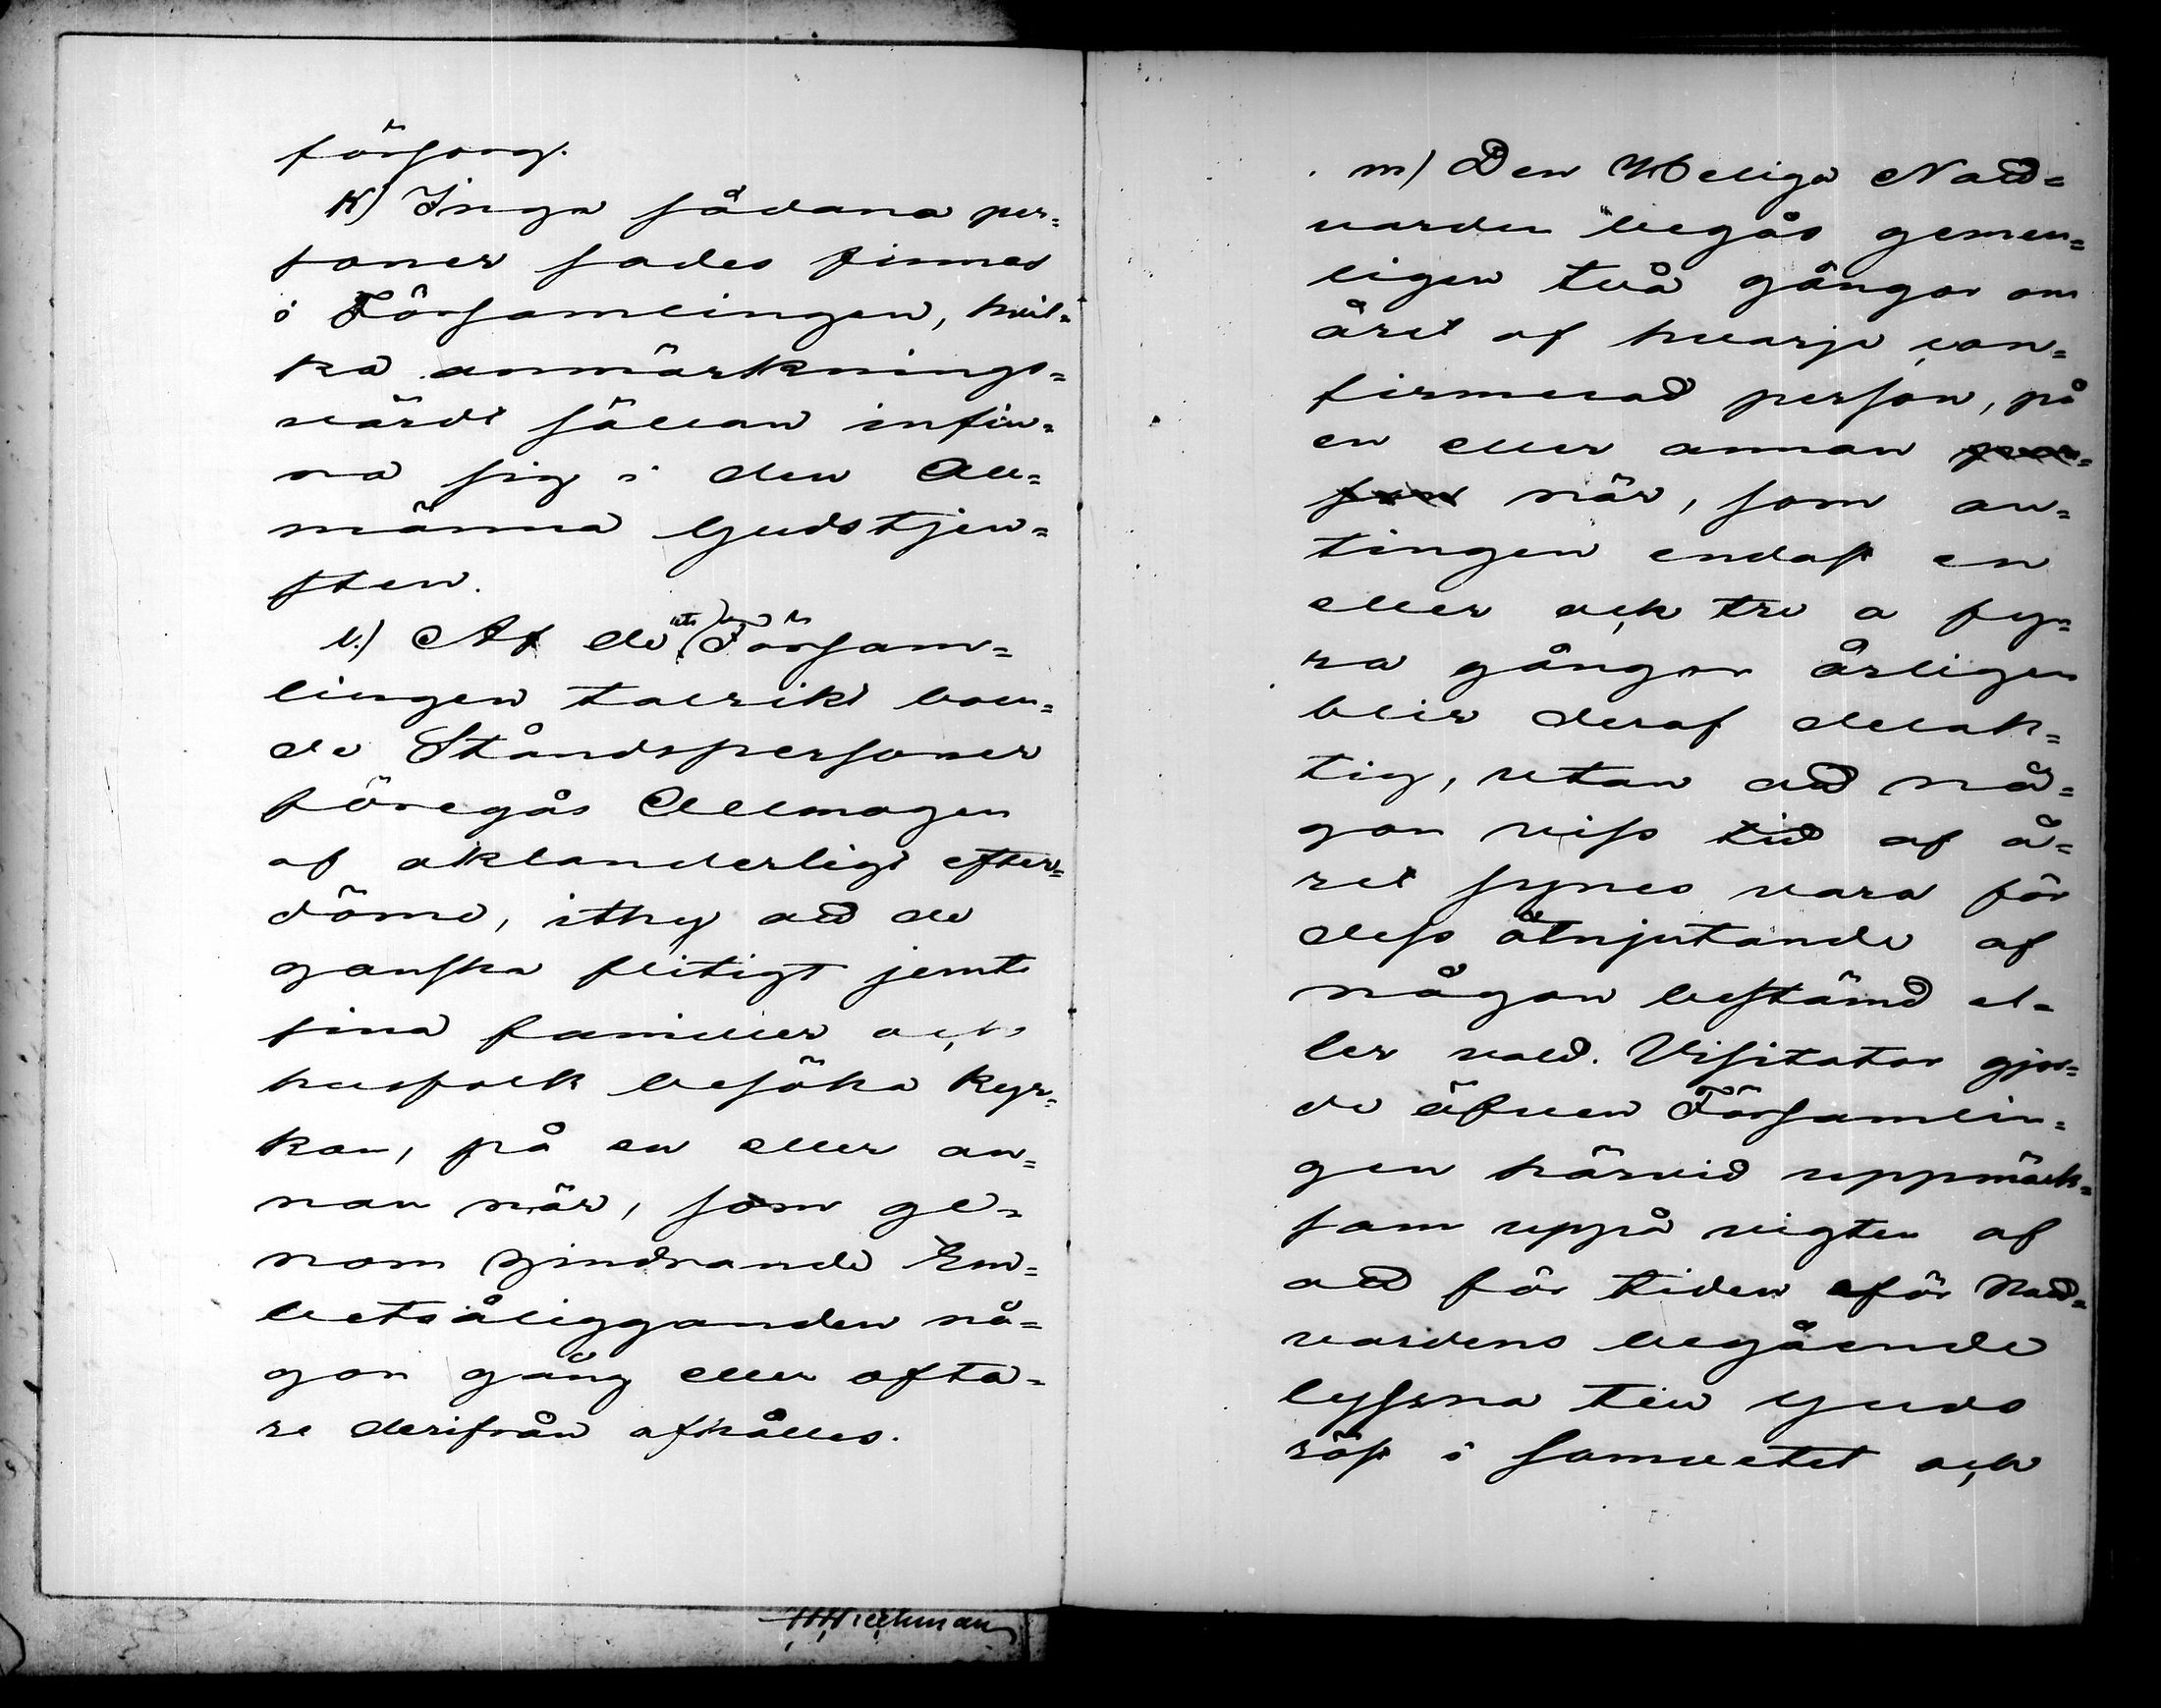 försorg.
K) Inga sådana per=
soner sades finnas
i Församlingen, hvil=
ka anmärknings=
värdt sällan infin=
na sig i den All=
männa Gudstjen=
sten.
l.) Af de uti Försam=
lingen talrikt boen=
de Ståndspersoner
föregås Allmogen
af oklanderligt efter=
döme, ithy att de
ganska flitigt jemte
sina familler och
husfolk besöka Kyr=
kan, på en eller an=
nan när, som ge=
nom hindrande Em=
betsåligganden nå=
gon gång eller ofta=
re derifrån afhålles.
m) Den Heliga Natt=
varden begås gemen=
ligen två gånger om
året af hvarje con=
firmerad person, på
en eller annan
när, som an=
tingen endast en
eller ock tre a fy=
ra gånger årligen
blir deraf delak=
tig, utan att nå=
gon viss tid af å=
ret synes vara för
dess åtnjutande af
någon bestämd el=
ler vald. Visitator gjor=
de äfven Församlin=
gen härvid uppmärk=
sam uppå vigten af
att för tiden för Natt=
vardens begående
lyssna till Guds
röst i samvetet och